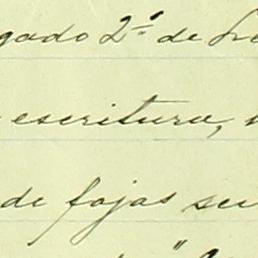 gado 2º de Le
escritura,
de fojas se